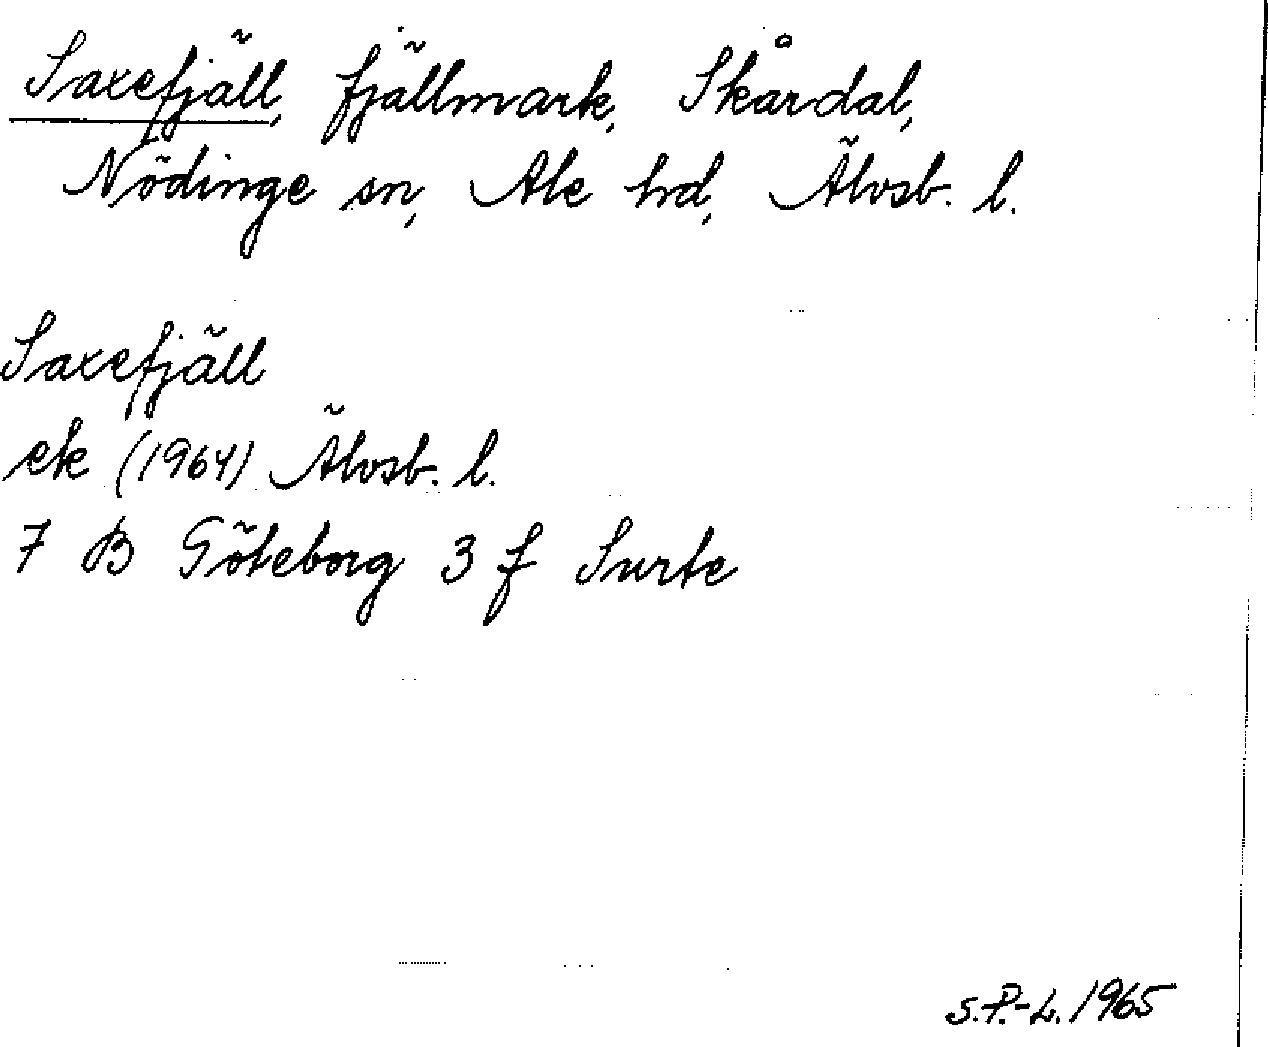 Saxefjäll, fjällmark, Skårdal,
Nödinge sn, Ale hd, Älvsb. l.
Saxefjäll
ek (1964) Älvsb. l.
7 B Göteborg 3 f Surte
S.P.-L. 1965